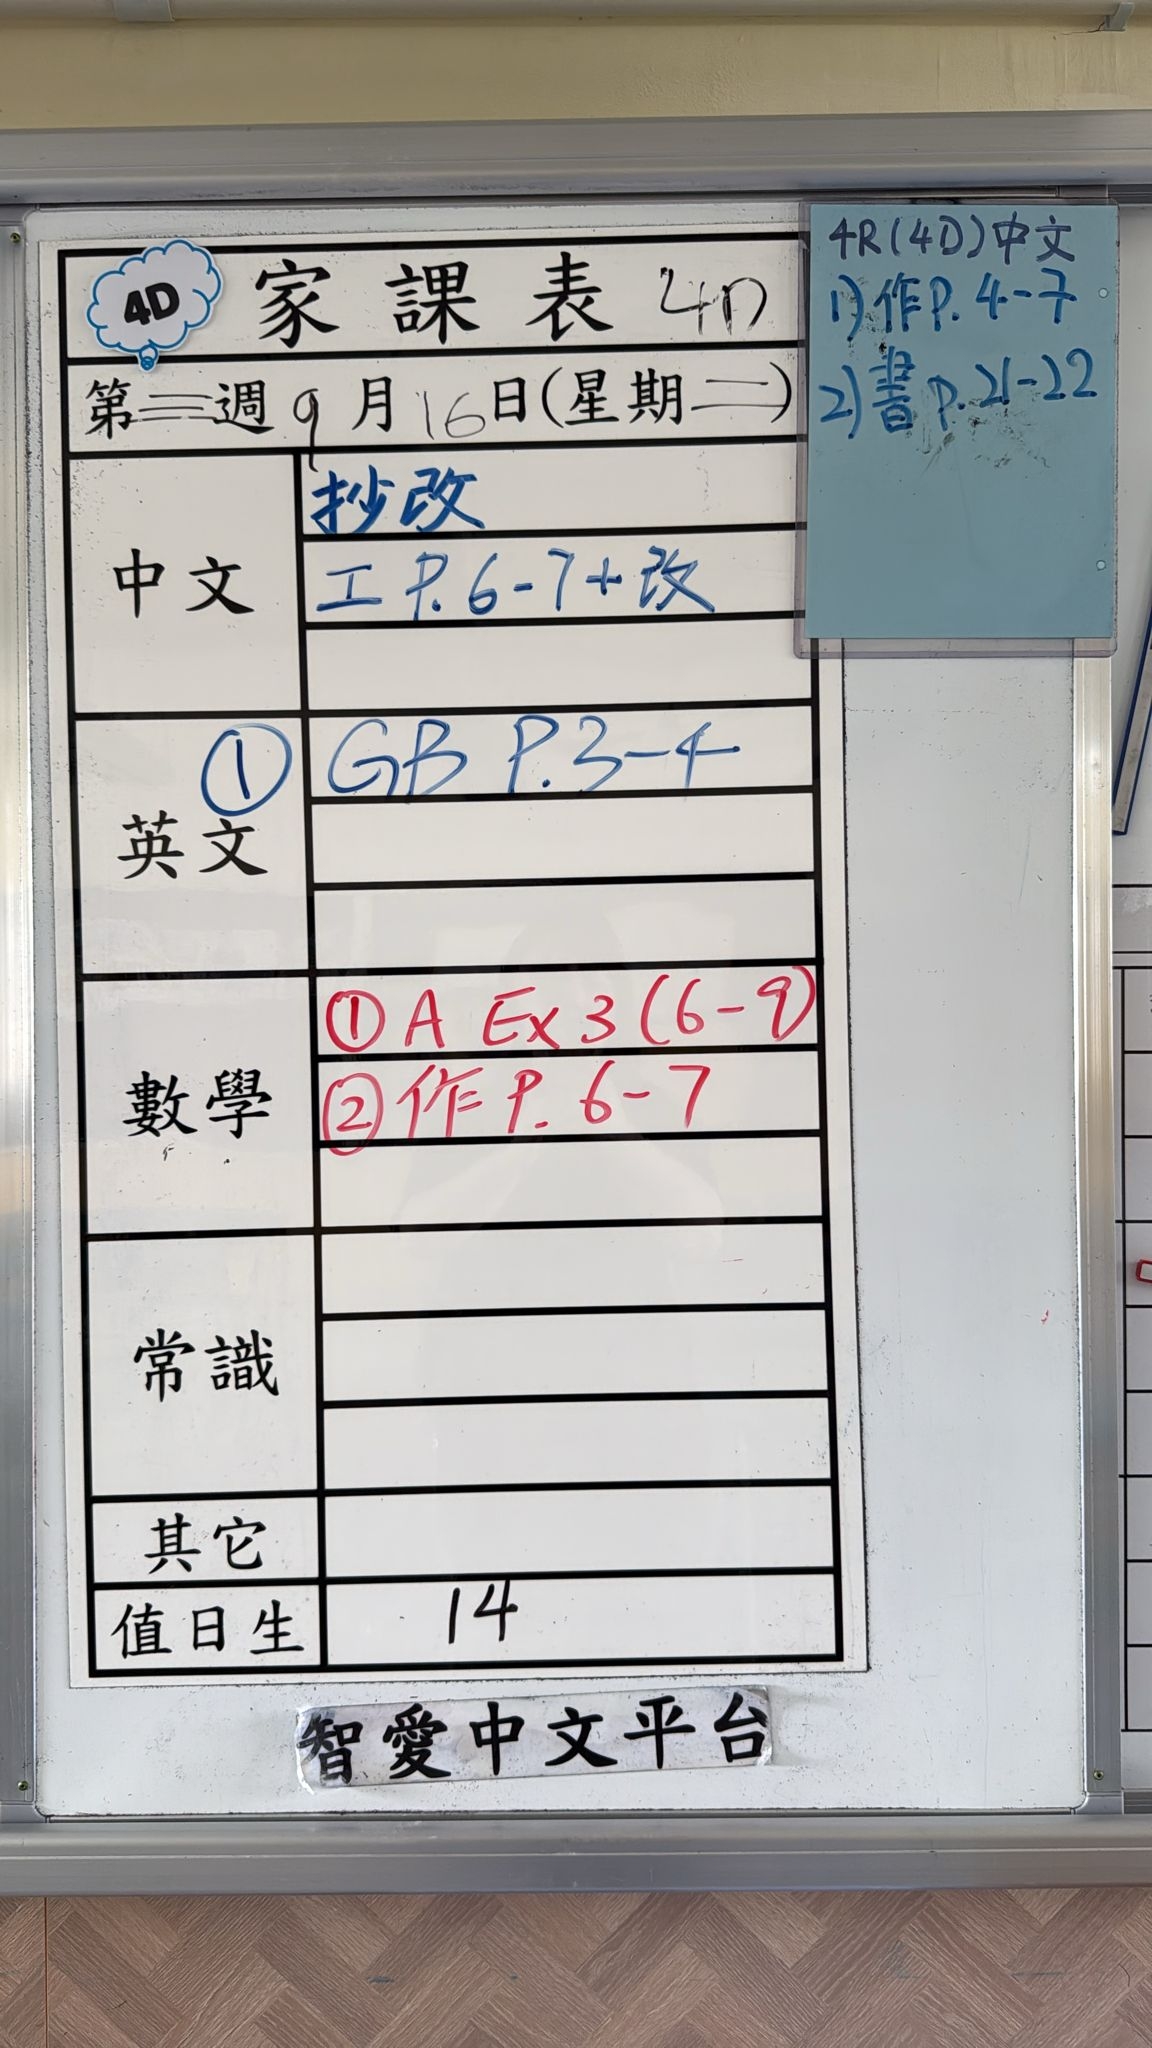 4D 家課表 4D
第三週 9月16日(星期二)
中文
抄改
工 P.6-7+改
英文
① GB P.3-4
數學
① A Ex 3 (6-9)
② 作 P. 6-7
常識
其它
值日生 14
智愛中文平台
4R(4D)中文
1) 作 P. 4-7
2) 書 P. 21-22